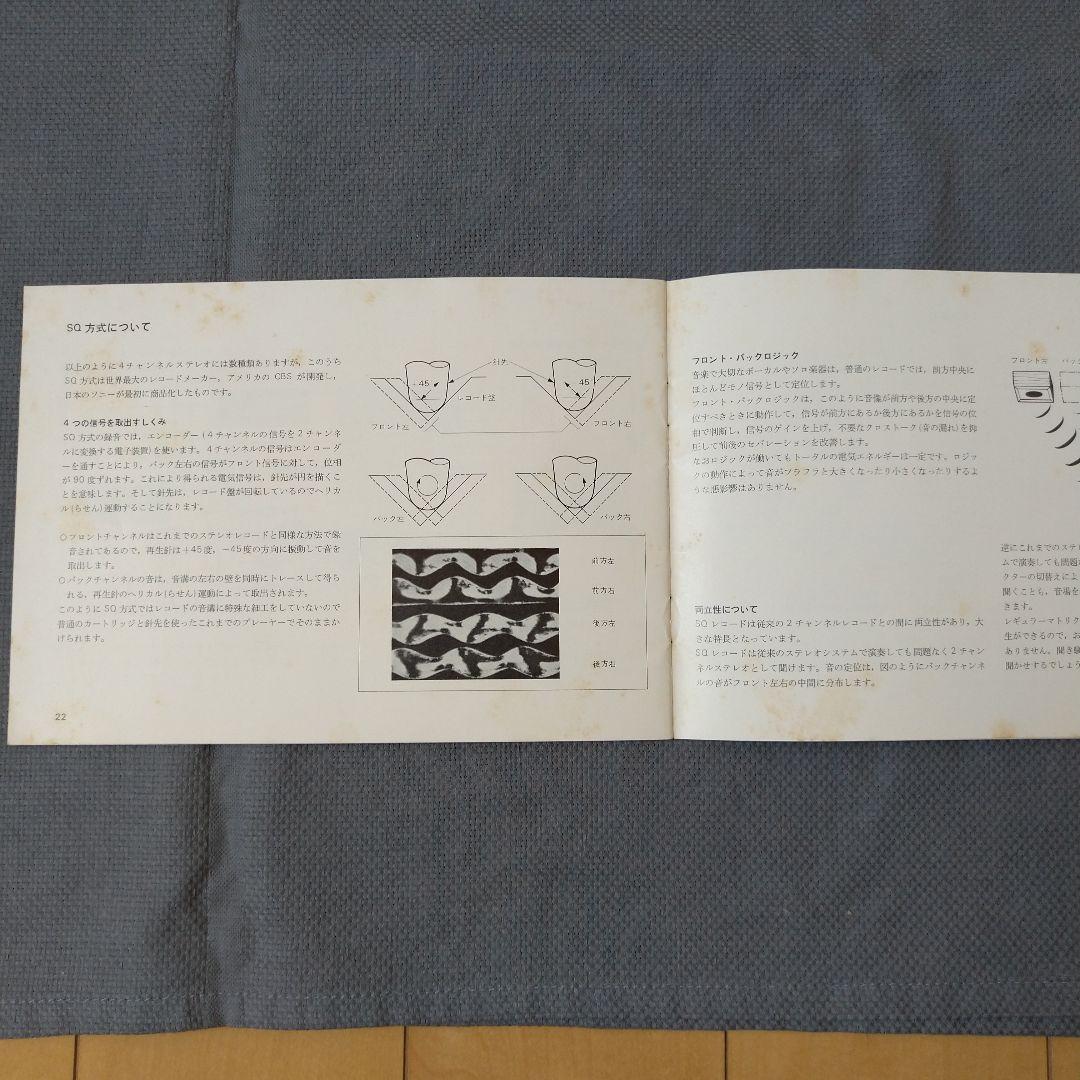 SQ 方式について
以上のように4チャンネルステレオには数種類ありますが，このうち
SQ 方式は世界最大のレコードメーカー，アメリカの CBS が開発し，
日本のソニーが最初に商品化したものです。
4 つの信号を取出すしくみ
SQ 方式の録音では，エンコーダー（4 チャンネルの信号を 2 チャンネ
ルに変換する電子装置）を使います。4チャンネルの信号はエンコーダ
ーを通すことにより，バック左右の信号がフロント信号に対して，位相
が 90 度ずれます。これにより得られる電気信号は，針先が円を描くこ
とを意味します。そして針先は，レコード盤が回転しているのでヘリカ
ル(らせん)運動することになります。
○フロントチャンネルはこれまでのステレオレコードと同様な方法で録
音されてあるので，再生針は＋45度，－45度の方向に振動して音を
取出します。
○バックチャンネルの音は，音溝の左右の壁を同時にトレースして得ら
れる，再生針のヘリカル(らせん)運動によって取出されます。
このように SQ 方式ではレコードの音溝に特殊な細工をしていないので
普通のカートリッジと針先を使ったこれまでのプレーヤーでそのままか
けられます。
22
針先
+45
45
レコード盤
フロント左
フロント右
バック左
バック右
前方左
前方右
後方左
後方右
フロント・バックロジック
音楽で大切なボーカルやソロ楽器は，普通のレコードでは，前方中央に
ほとんどモノ信号として定位します。
フロント・バックロジックは，このように音像が前方や後方の中央に定
位すべきときに動作して，信号が前方にあるか後方にあるかを信号の位
相で判断し，信号のゲインを上げ，不要なクロストーク(音の漏れ)を抑
圧して前後のセパレーションを改善します。
なおロジックが働いてもトータルの電気エネルギーは一定です。ロジッ
クの動作によって音がフラフラと大きくなったり小さくなったりするよ
うな悪影響はありません。
両立性について
SQ レコードは従来の 2 チャンネルレコードとの間に両立性があり，大
きな特長となっています。
SQ レコードは従来のステレオシステムで演奏しても問題なく 2 チャン
ネルステレオとして聞けます。音の定位は，図のようにバックチャンネ
ルの音がフロント左右の中間に分布します。
フロント左
バッ
逆にこれまでのステレ
ムで演奏しても問題
クターの切替えによ
聞くことも，音場を
きます。
レギュラーマトリク
生ができるので，お
ありません。聞き
聞かせするでしょう